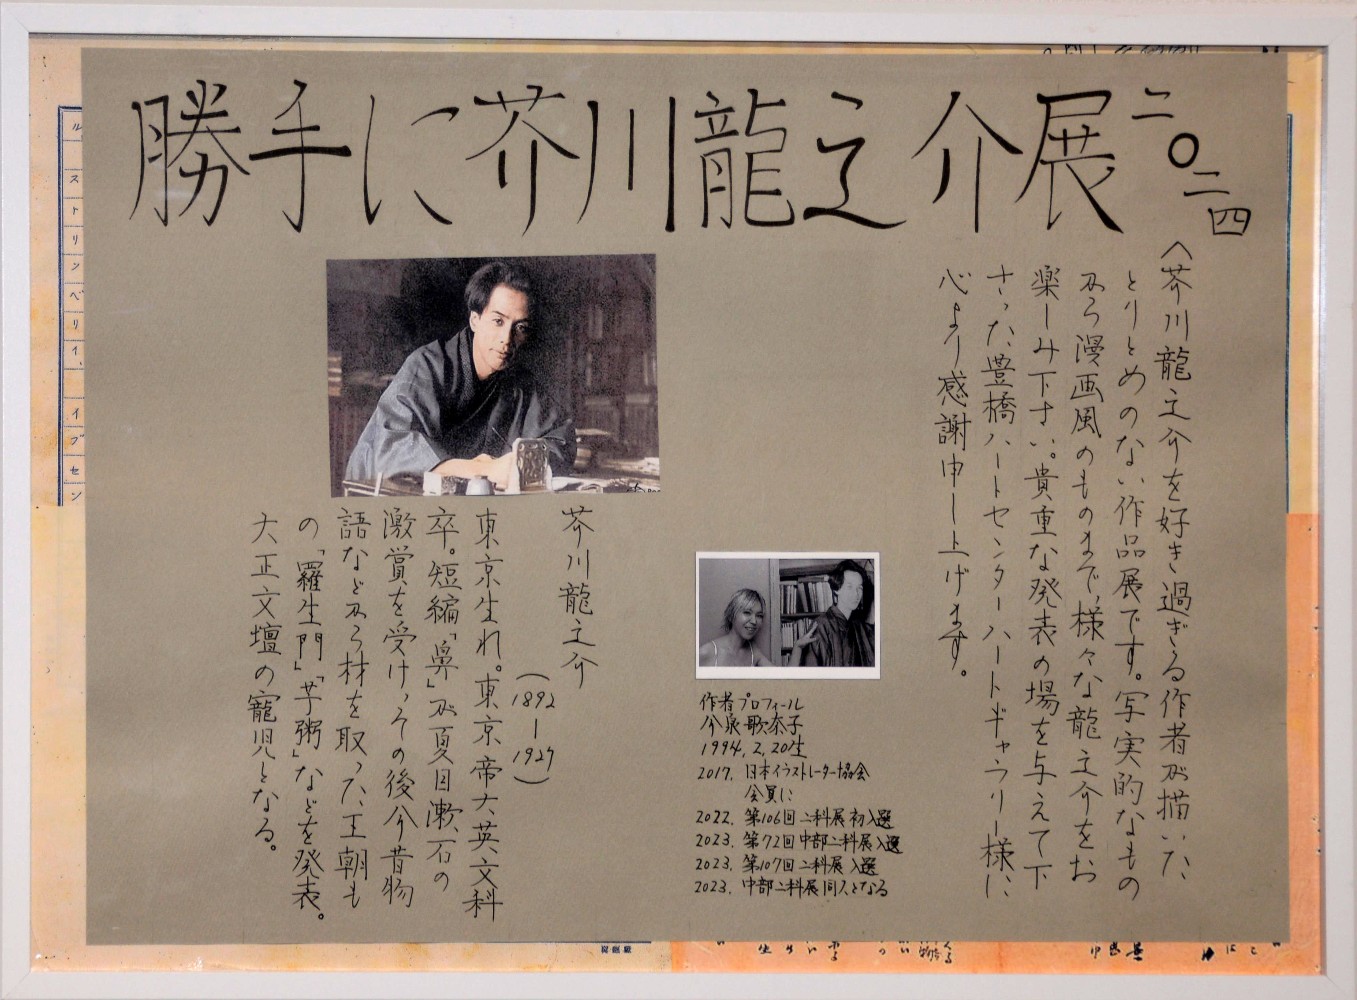 勝手に芥川龍之介展二〇二四
〈芥川龍之介を好き過ぎる作者が描いた
とりとめのない作品展です。写実的なもの
から漫画風のものまで、様々な龍之介をお
楽しみ下さい。貴重な発表の場を与えて下
さった豊橋ハートセンターハートギャラリー様に
心より感謝申し上げます。
芥川龍之介
(1892―1927)
東京生れ。東京帝大英文科
卒。短編「鼻」が夏目漱石の
激賞を受け、その後今昔物
語などから材を取った王朝も
の「羅生門」「芋粥」などを発表。
大正文壇の寵児となる。
作者プロフィール
今泉歌奈子
1994.2.20生
2017. 日本イラストレーター協会
会員に
2022. 第106回二科展初入選
2023. 第72回中部二科展入選
2023. 第107回二科展入選
2023. 中部二科展同人となる
ストリンベリイ、
イブセン